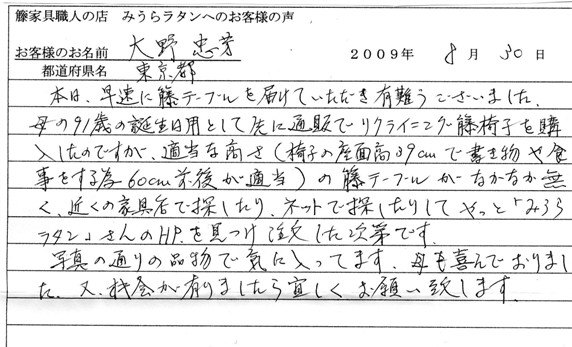 籐家具職人の店　みうらラタンへのお客様の声
お客様のお名前　大野 忠芳　2009年　8月　30日
都道府県名　東京都
本日、早速に籐テーブルを届けていただき有難うございました。
母の91歳の誕生日用として先に通販でリクライニング籐椅子を購
入したのですが、適当な高さ（椅子の座面高39cmで書き物や食
事をする為60cm前後が適当）の籐テーブルがなかなか無
く、近くの家具店で探したり、ネットで探したりしてやっと「みうら
ラタン」さんのHPを見つけ注文した次第です。
写真の通りの品物で気に入ってます。母も喜んでおりまし
た。又、機会が有りましたら宜しくお願い致します。